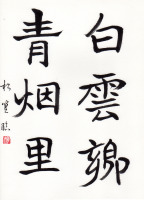 白雲鄉
青烟里